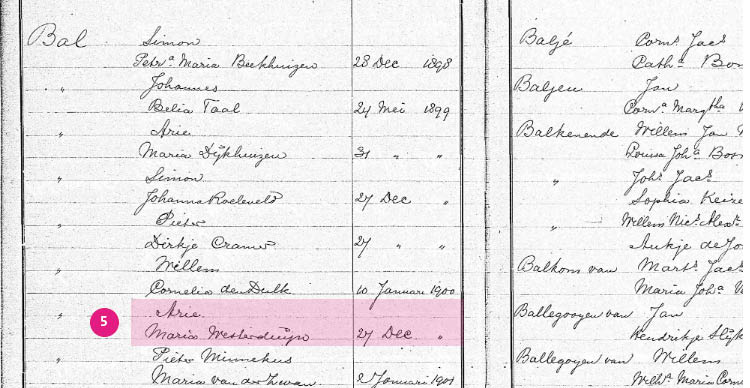 Bal Simon
Petra. Maria Beekhuizen 28 Dec 1898
" Johannes
Belia Taal 24 Mei 1899
" Arie
Maria Dijkhuizen 31 " "
" Simon
Johanna Roeleveld 27 Dec "
" Pieter
Dirkje Cramer 27 " "
" Willem
Cornelia den Dulk 10 Januari 1900
" Arie
5 Maria Westerduijn 27 Dec "
" Pieter Minnekus
Maria van der Zwan 2 Januari 1901
Baljé Corns. Jacs
Catha.
Baljeu Jan
Corna. Margtha
Balkenende Willem Jan
Louisa Joha.
" Johs. Jacs.
Sophia Keize
" Willem Nics. Alexr.
Aukje de Jo
Balkom van Marts. Jacs.
Maria Joha. V
Ballegooyen van Jan
Hendrikje
Ballegoyen van Willem
Wilha. Maria Corn